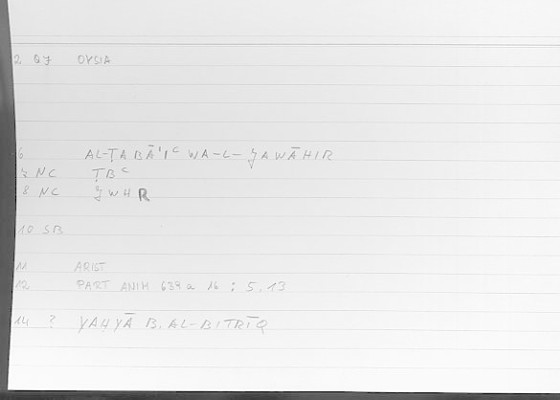 2 QY OYSIA
6 AL-ṬABĀ'Iᶜ WA-L-ǮAWĀHIR
7 NC ṬBᶜ
8 NC ǮWHR
10 SB
11 ARIST
12 PART ANIM 639 a 16 : 5.13
14 ? YAḤYĀ B. AL-BIṬRĪQ